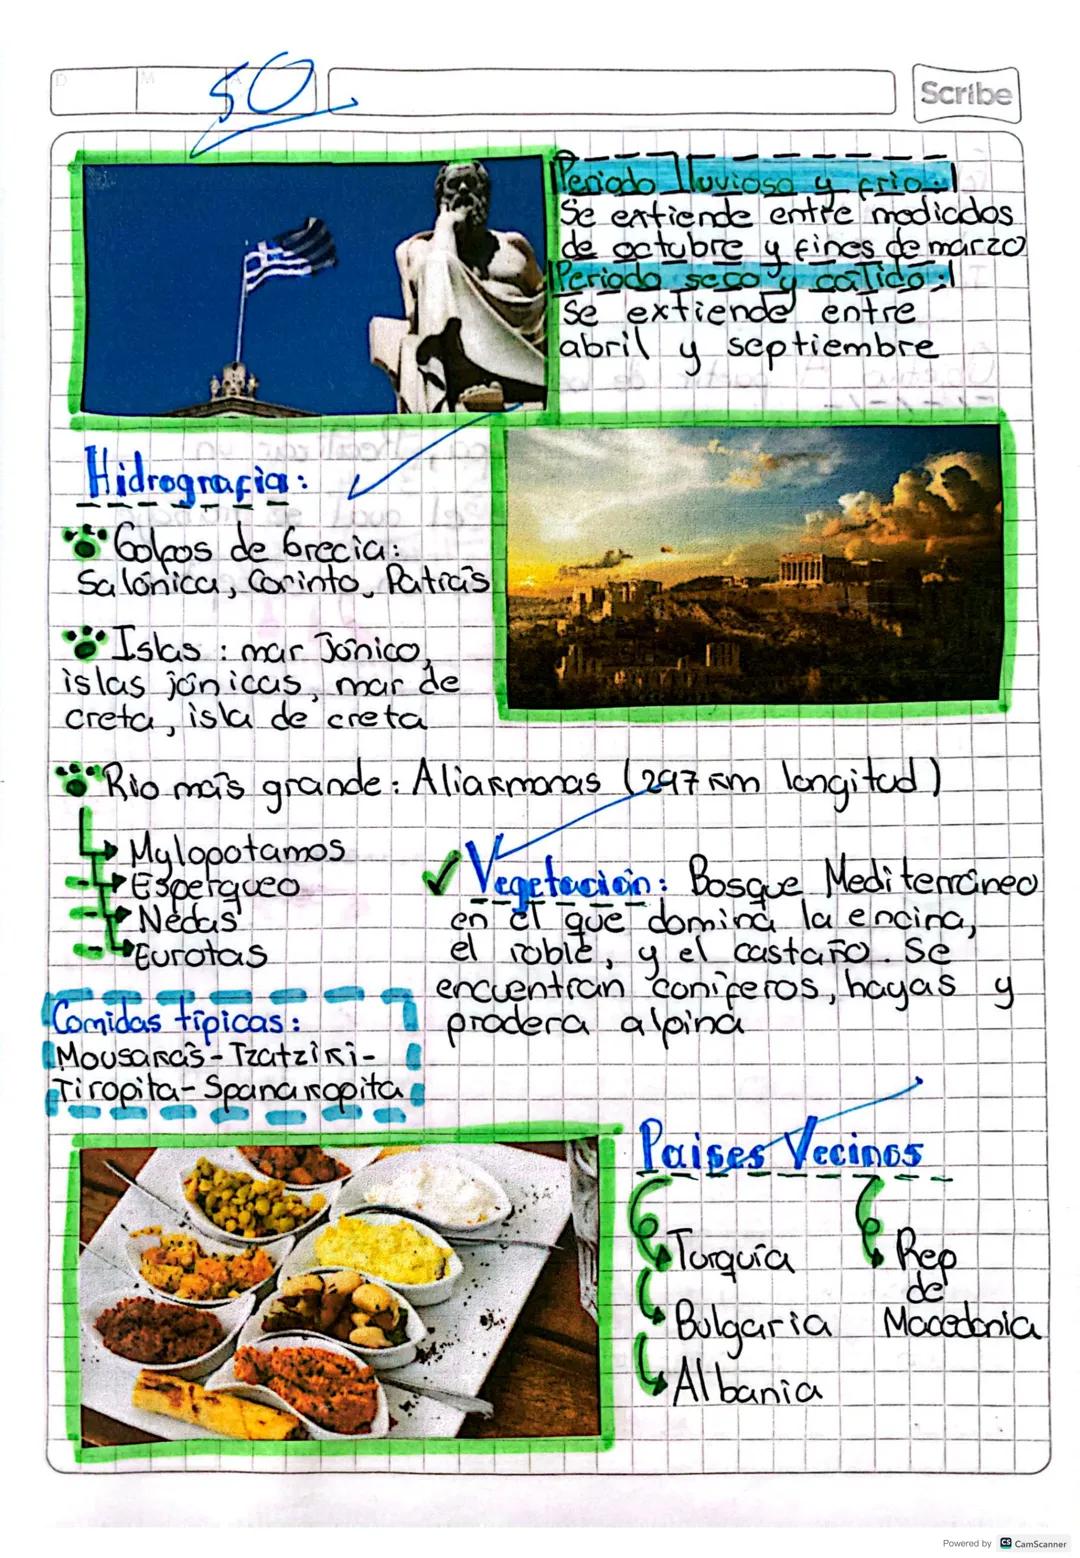 D M A
50
Scribe
Periodo lluvioso y frio:
Se extiende entre mediados
de octubre y fines de marzo
Periodo seco y cálido:
Se extiende entre
abril y septiembre
Hidrografia:
Golfos de Grecia:
Salónica, Corinto, Patrás
Islas: mar Jónico,
islas jónicas, mar de
creta, isla de creta
Rio más grande: Aliakmonas (297 km longitud)
Mylopotamos
Esperqueo
Nedas
Eurotas
Vegetación: Bosque Mediterráneo
en el que domina la encina,
el roble, y el castaño. Se
encuentran coniferos, hayas y
pradera alpina
Comidas típicas:
Mousakás - Tzatziki -
Tiropita - Spanakopita
Paises Vecinos
Turquía
Bulgaria
Albania
Rep
de
Macedonia
Powered by CS CamScanner